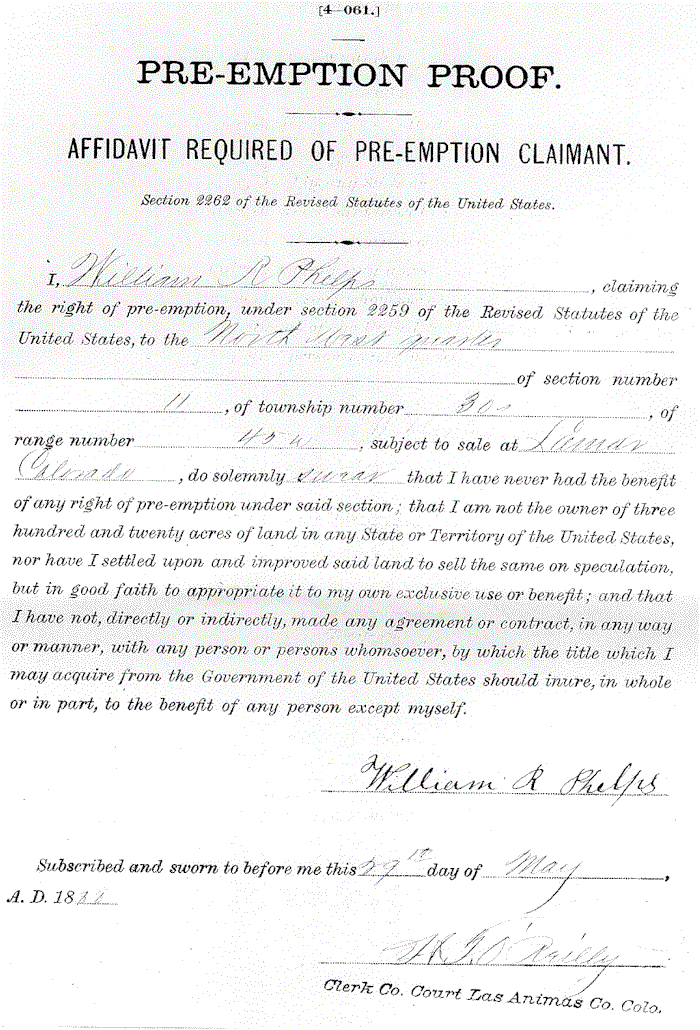 [4—061.]
PRE-EMPTION PROOF.
AFFIDAVIT REQUIRED OF PRE-EMPTION CLAIMANT.
Section 2262 of the Revised Statutes of the United States.
I, William R Phelps, claiming
the right of pre-emption, under section 2259 of the Revised Statutes of the
United States, to the North West quarter
of section number
11, of township number 30 s, of
range number 45 w, subject to sale at Lamar
Colorado, do solemnly swear that I have never had the benefit
of any right of pre-emption under said section; that I am not the owner of three
hundred and twenty acres of land in any State or Territory of the United States,
nor have I settled upon and improved said land to sell the same on speculation,
but in good faith to appropriate it to my own exclusive use or benefit; and that
I have not, directly or indirectly, made any agreement or contract, in any way
or manner, with any person or persons whomsoever, by which the title which I
may acquire from the Government of the United States should inure, in whole
or in part, to the benefit of any person except myself.
William R Phelps
Subscribed and sworn to before me this 29th day of May,
A. D. 1888
O'Reilly
Clerk Co. Court Las Animas Co. Colo.